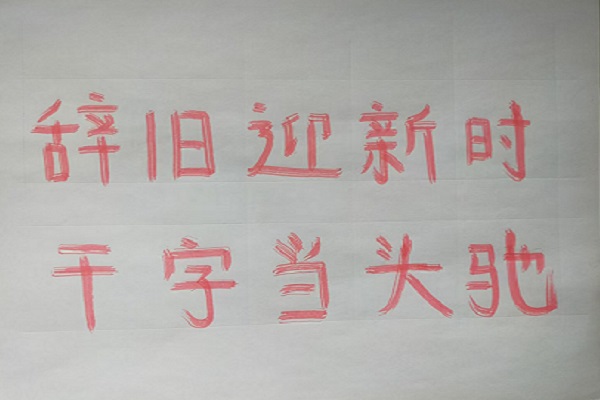 辞旧迎新时
干字当头驰